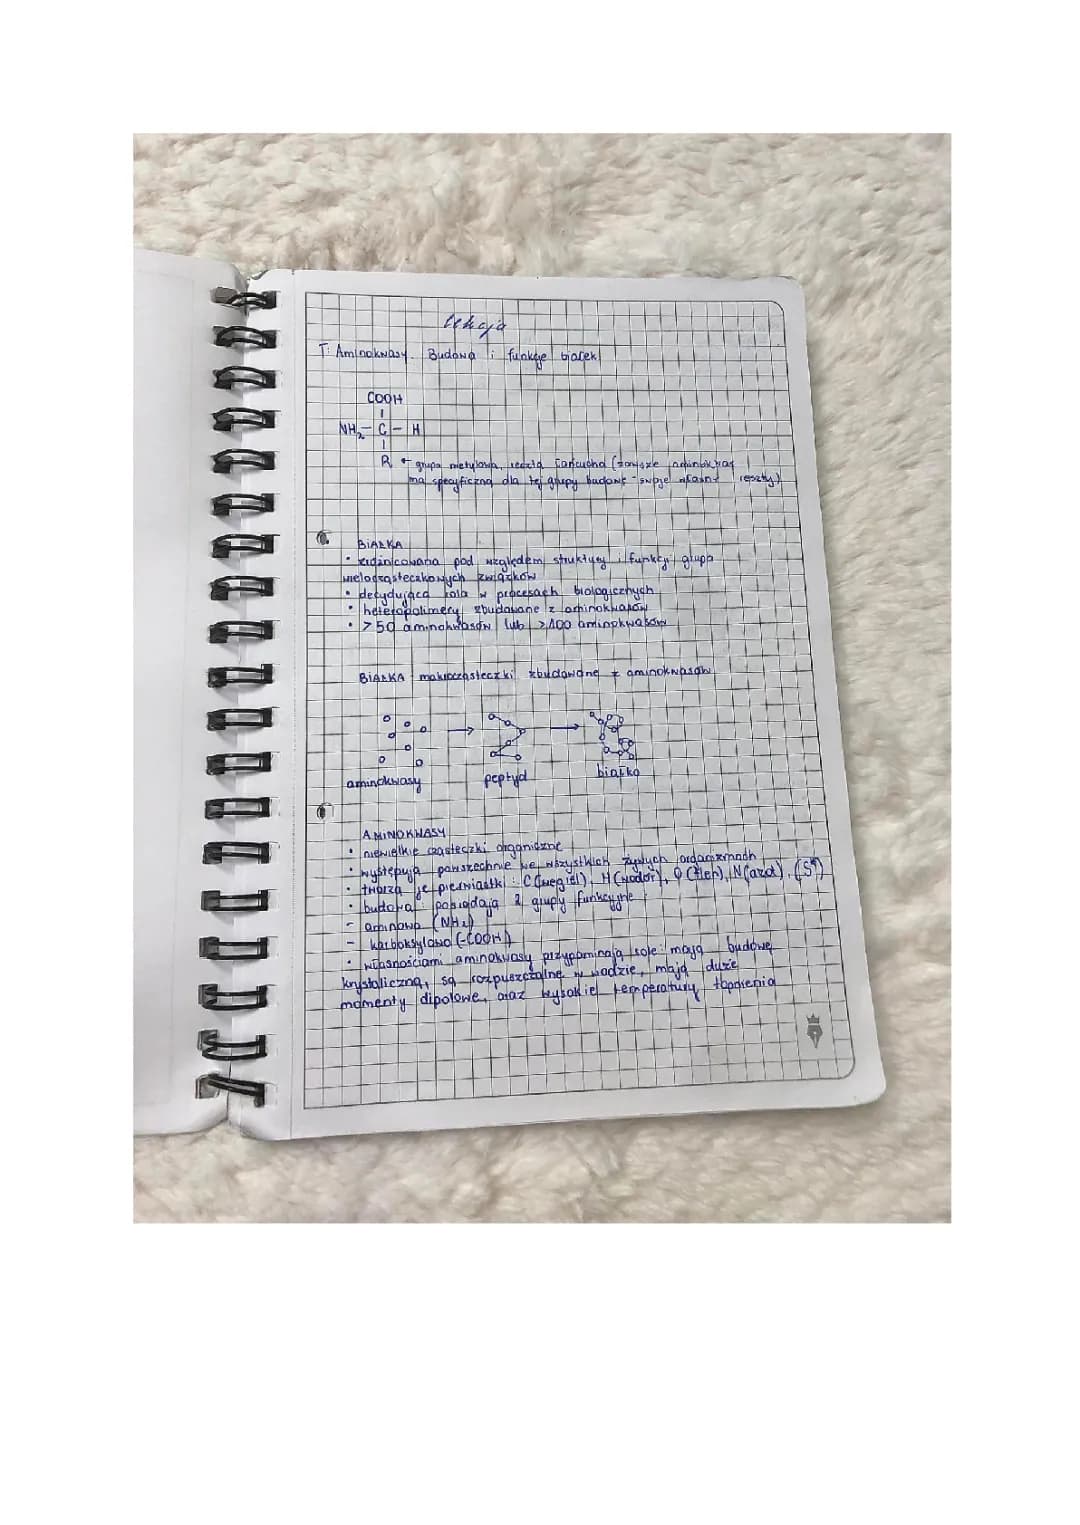 lekcja
T: Aminokwasy. Budowa i funkcje białek
COOH
NH₂ - C - H
R ← grupa metylowa, reszta łańcucha (zawsze aminokwas
ma specyficzną dla tej grupy budowę - swoje własne reszty)
BIAŁKA
• zróżnicowana pod względem struktury i funkcji grupa
wielocząsteczkowych związków
• decydująca rola w procesach biologicznych
• heteropolimery zbudowane z aminokwasów
• > 50 aminokwasów lub > 100 aminokwasów
BIAŁKA makrocząsteczki zbudowane z aminokwasów
aminokwasy peptyd białko
AMINOKWASY
• niewielkie cząsteczki organiczne
• występują powszechnie we wszystkich żywych organizmach
• tworzą je pierwiastki: C (węgiel), H (wodór), O (tlen), N (azot), (S)
• budowa: posiadają 2 grupy funkcyjne
- aminowa (NH₂)
- karboksylowa (-COOH)
• własnościami aminokwasy przypominają sole: mają budowę
krystaliczną, są rozpuszczalne w wodzie, mają duże
momenty dipolowe, oraz wysokie temperatury topnienia